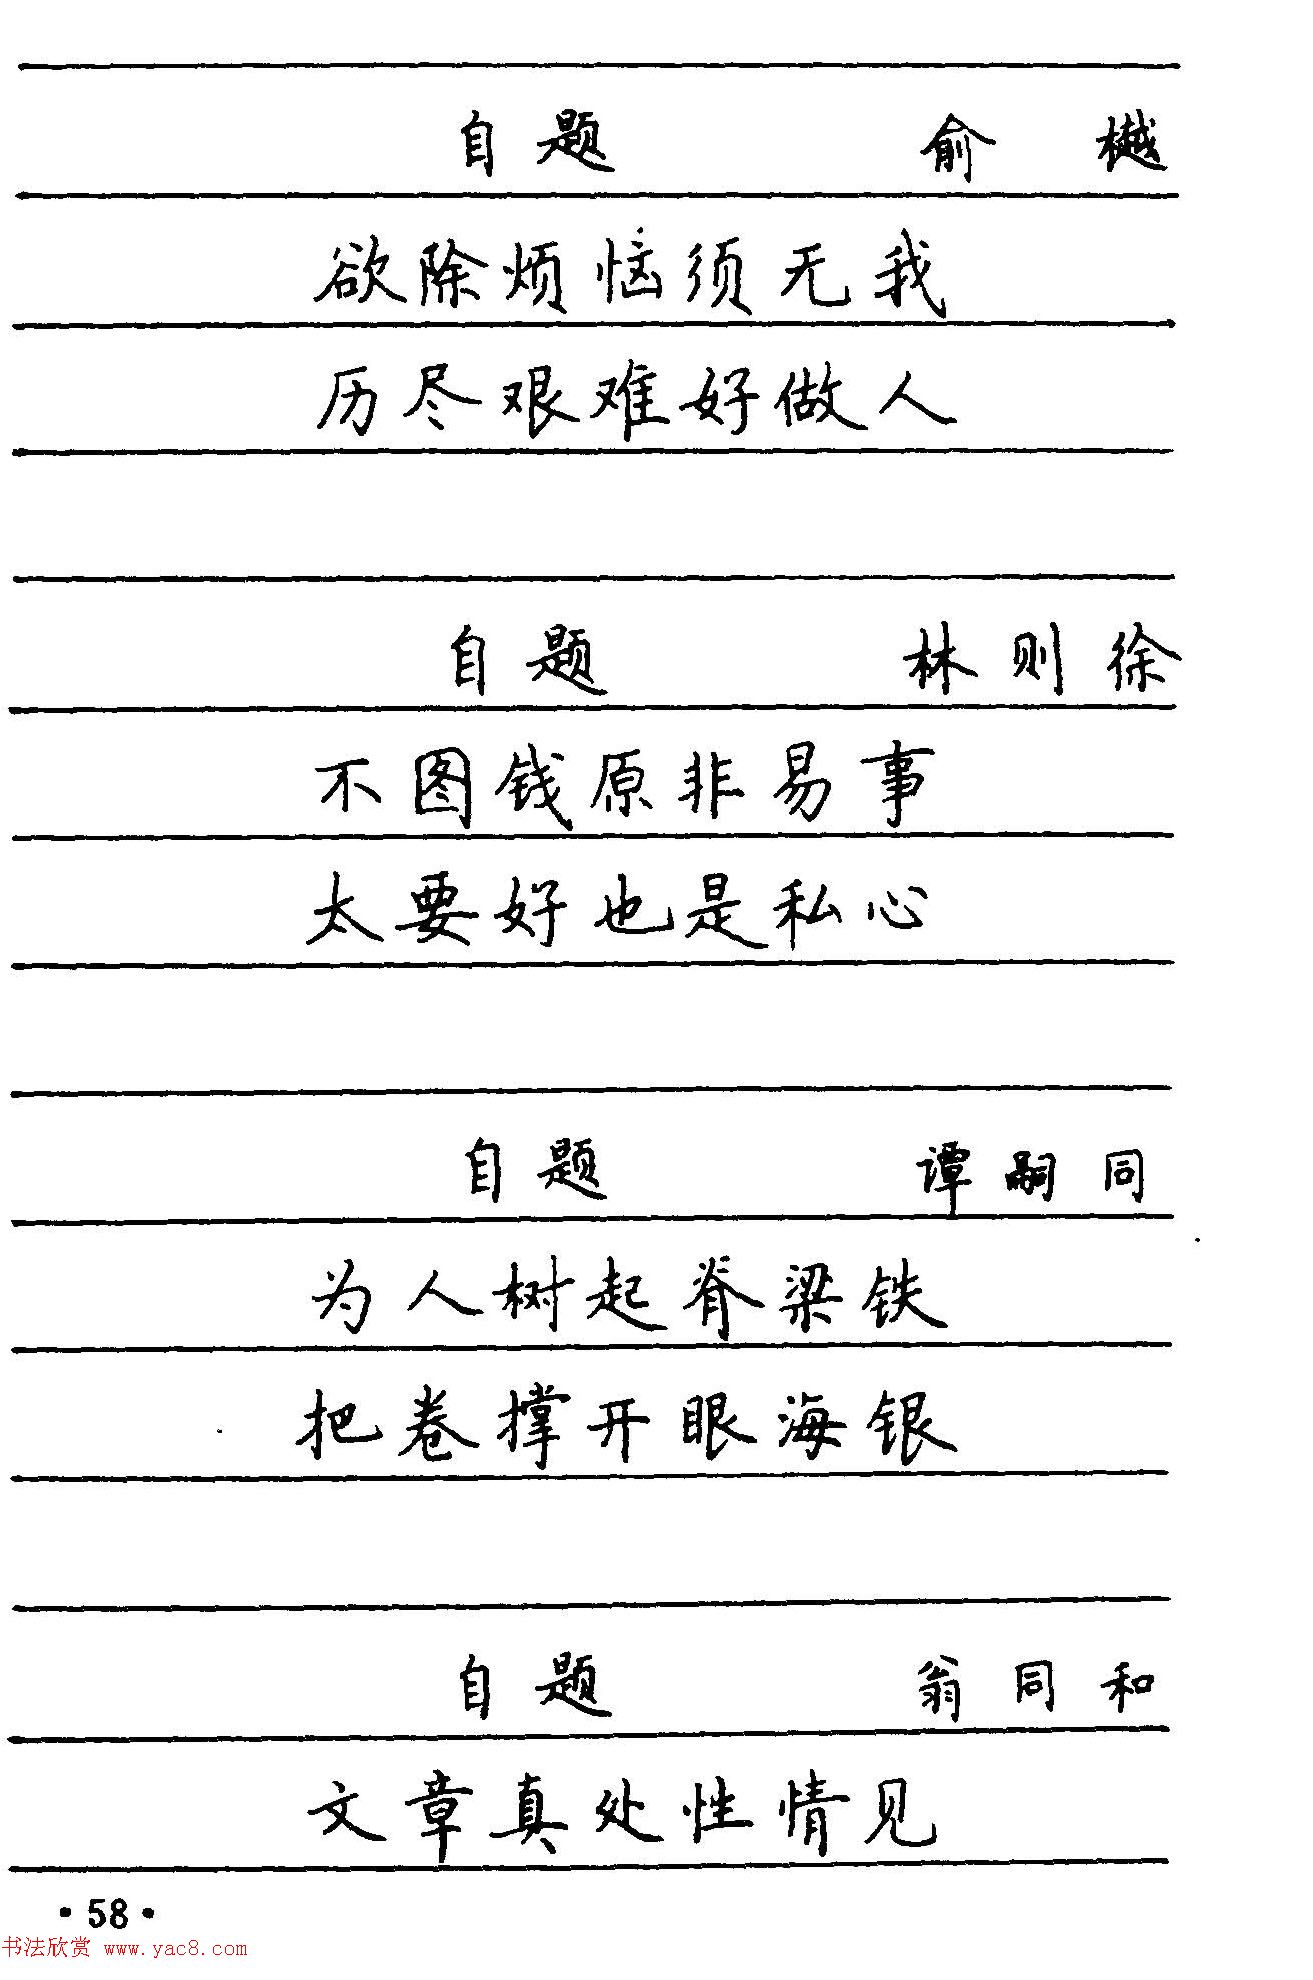 自题 俞樾
欲除烦恼须无我
历尽艰难好做人
自题 林则徐
不图钱原非易事
太要好也是私心
自题 谭嗣同
为人树起脊梁铁
把卷撑开眼海银
自题 翁同和
文章真处性情见
·58·
书法欣赏 www.yac8.com